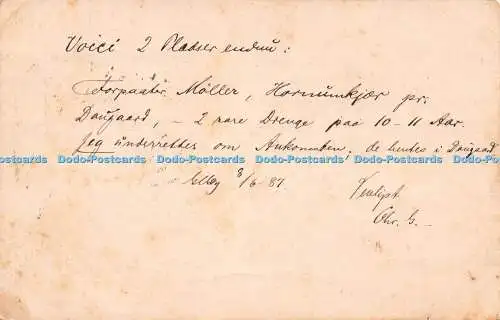 Voici 2 Pladser endnu:
Forpagter Möller, Hornumkjær pr.
Daugaard, – 2 rare Drenge paa 10–11 Aar.
Jeg underrettes om Ankomsten, de hentes i Daugaard
Dodo-Postcards Dodo-Postcards Dodo-Postcards Dodo-Postcards Dodo-Postcards
8/6–87
Venligst
Chr. G.